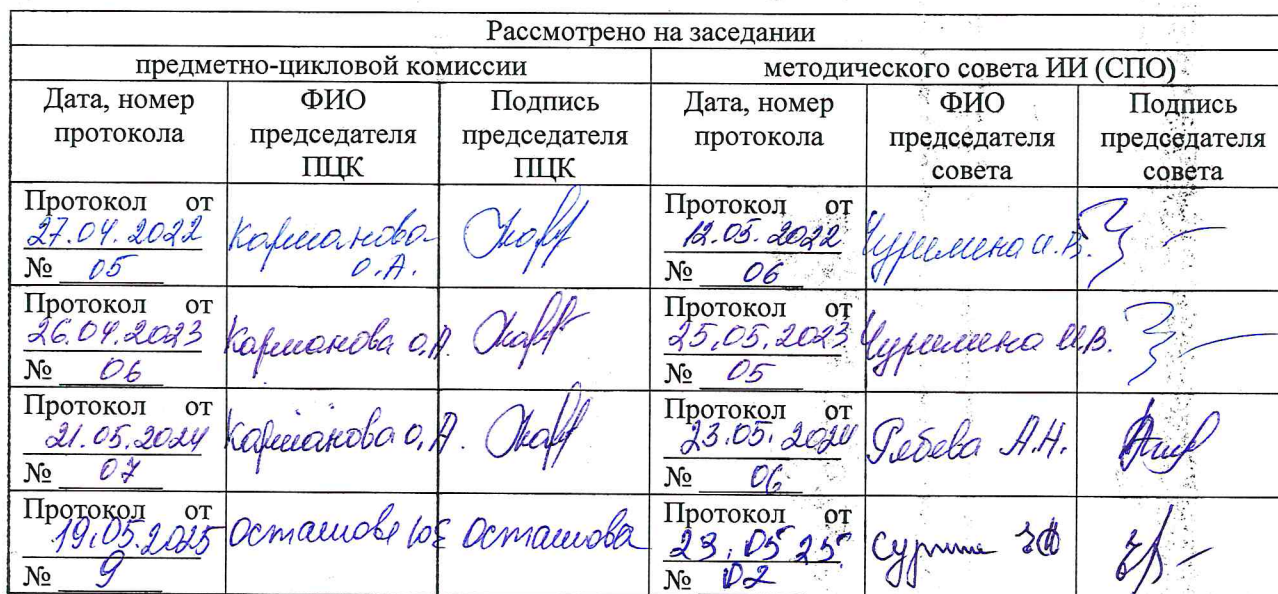 Рассмотрено на заседании
предметно-цикловой комиссии
методического совета ИИ (СПО)
Дата, номер протокола
ФИО председателя ПЦК
Подпись председателя ПЦК
Дата, номер протокола
ФИО председателя совета
Подпись председателя совета
Протокол от
27.04.2022
№ 05
Карманова
О.А.
Протокол от
12.05.2022
№ 06
Чуримина И.В.
Протокол от
26.04.2023
№ 06
Карманова О.А.
Протокол от
25.05.2023
№ 05
Чуримина И.В.
Протокол от
21.05.2024
№ 07
Карманова О.А.
Протокол от
23.05.2024
№ 06
Рябева А.Н.
Протокол от
19.05.2025
№ 9
Осташова
Осташова
Протокол от
23.05 25
№ 02